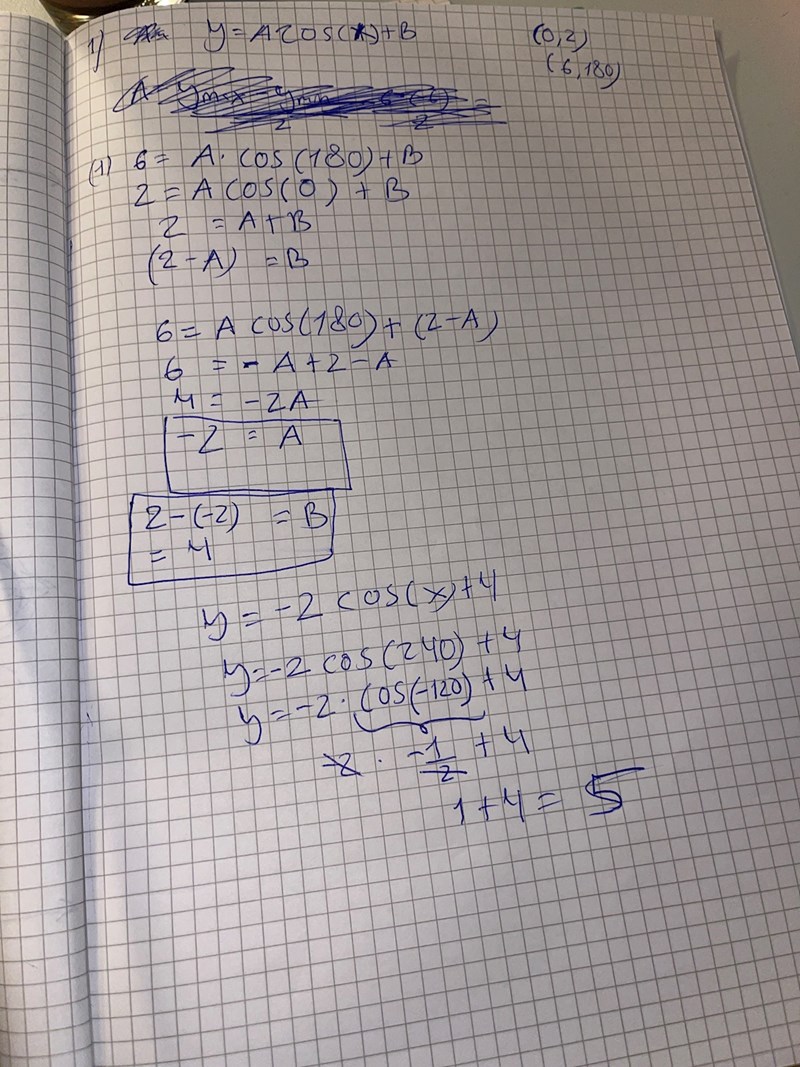 1) y = A cos(x) + B (0,2)
(6,180)
(1) 6 = A · cos(180) + B
2 = A cos(0) + B
2 = A + B
(2 - A) = B
6 = A cos(180) + (2 - A)
6 = - A + 2 - A
4 = -2A
-2 = A
2 - (-2) = B
= 4
y = -2 cos(x) + 4
y = -2 cos(240) + 4
y = -2 · cos(-120) + 4
-2 · -1/2 + 4
1 + 4 = 5